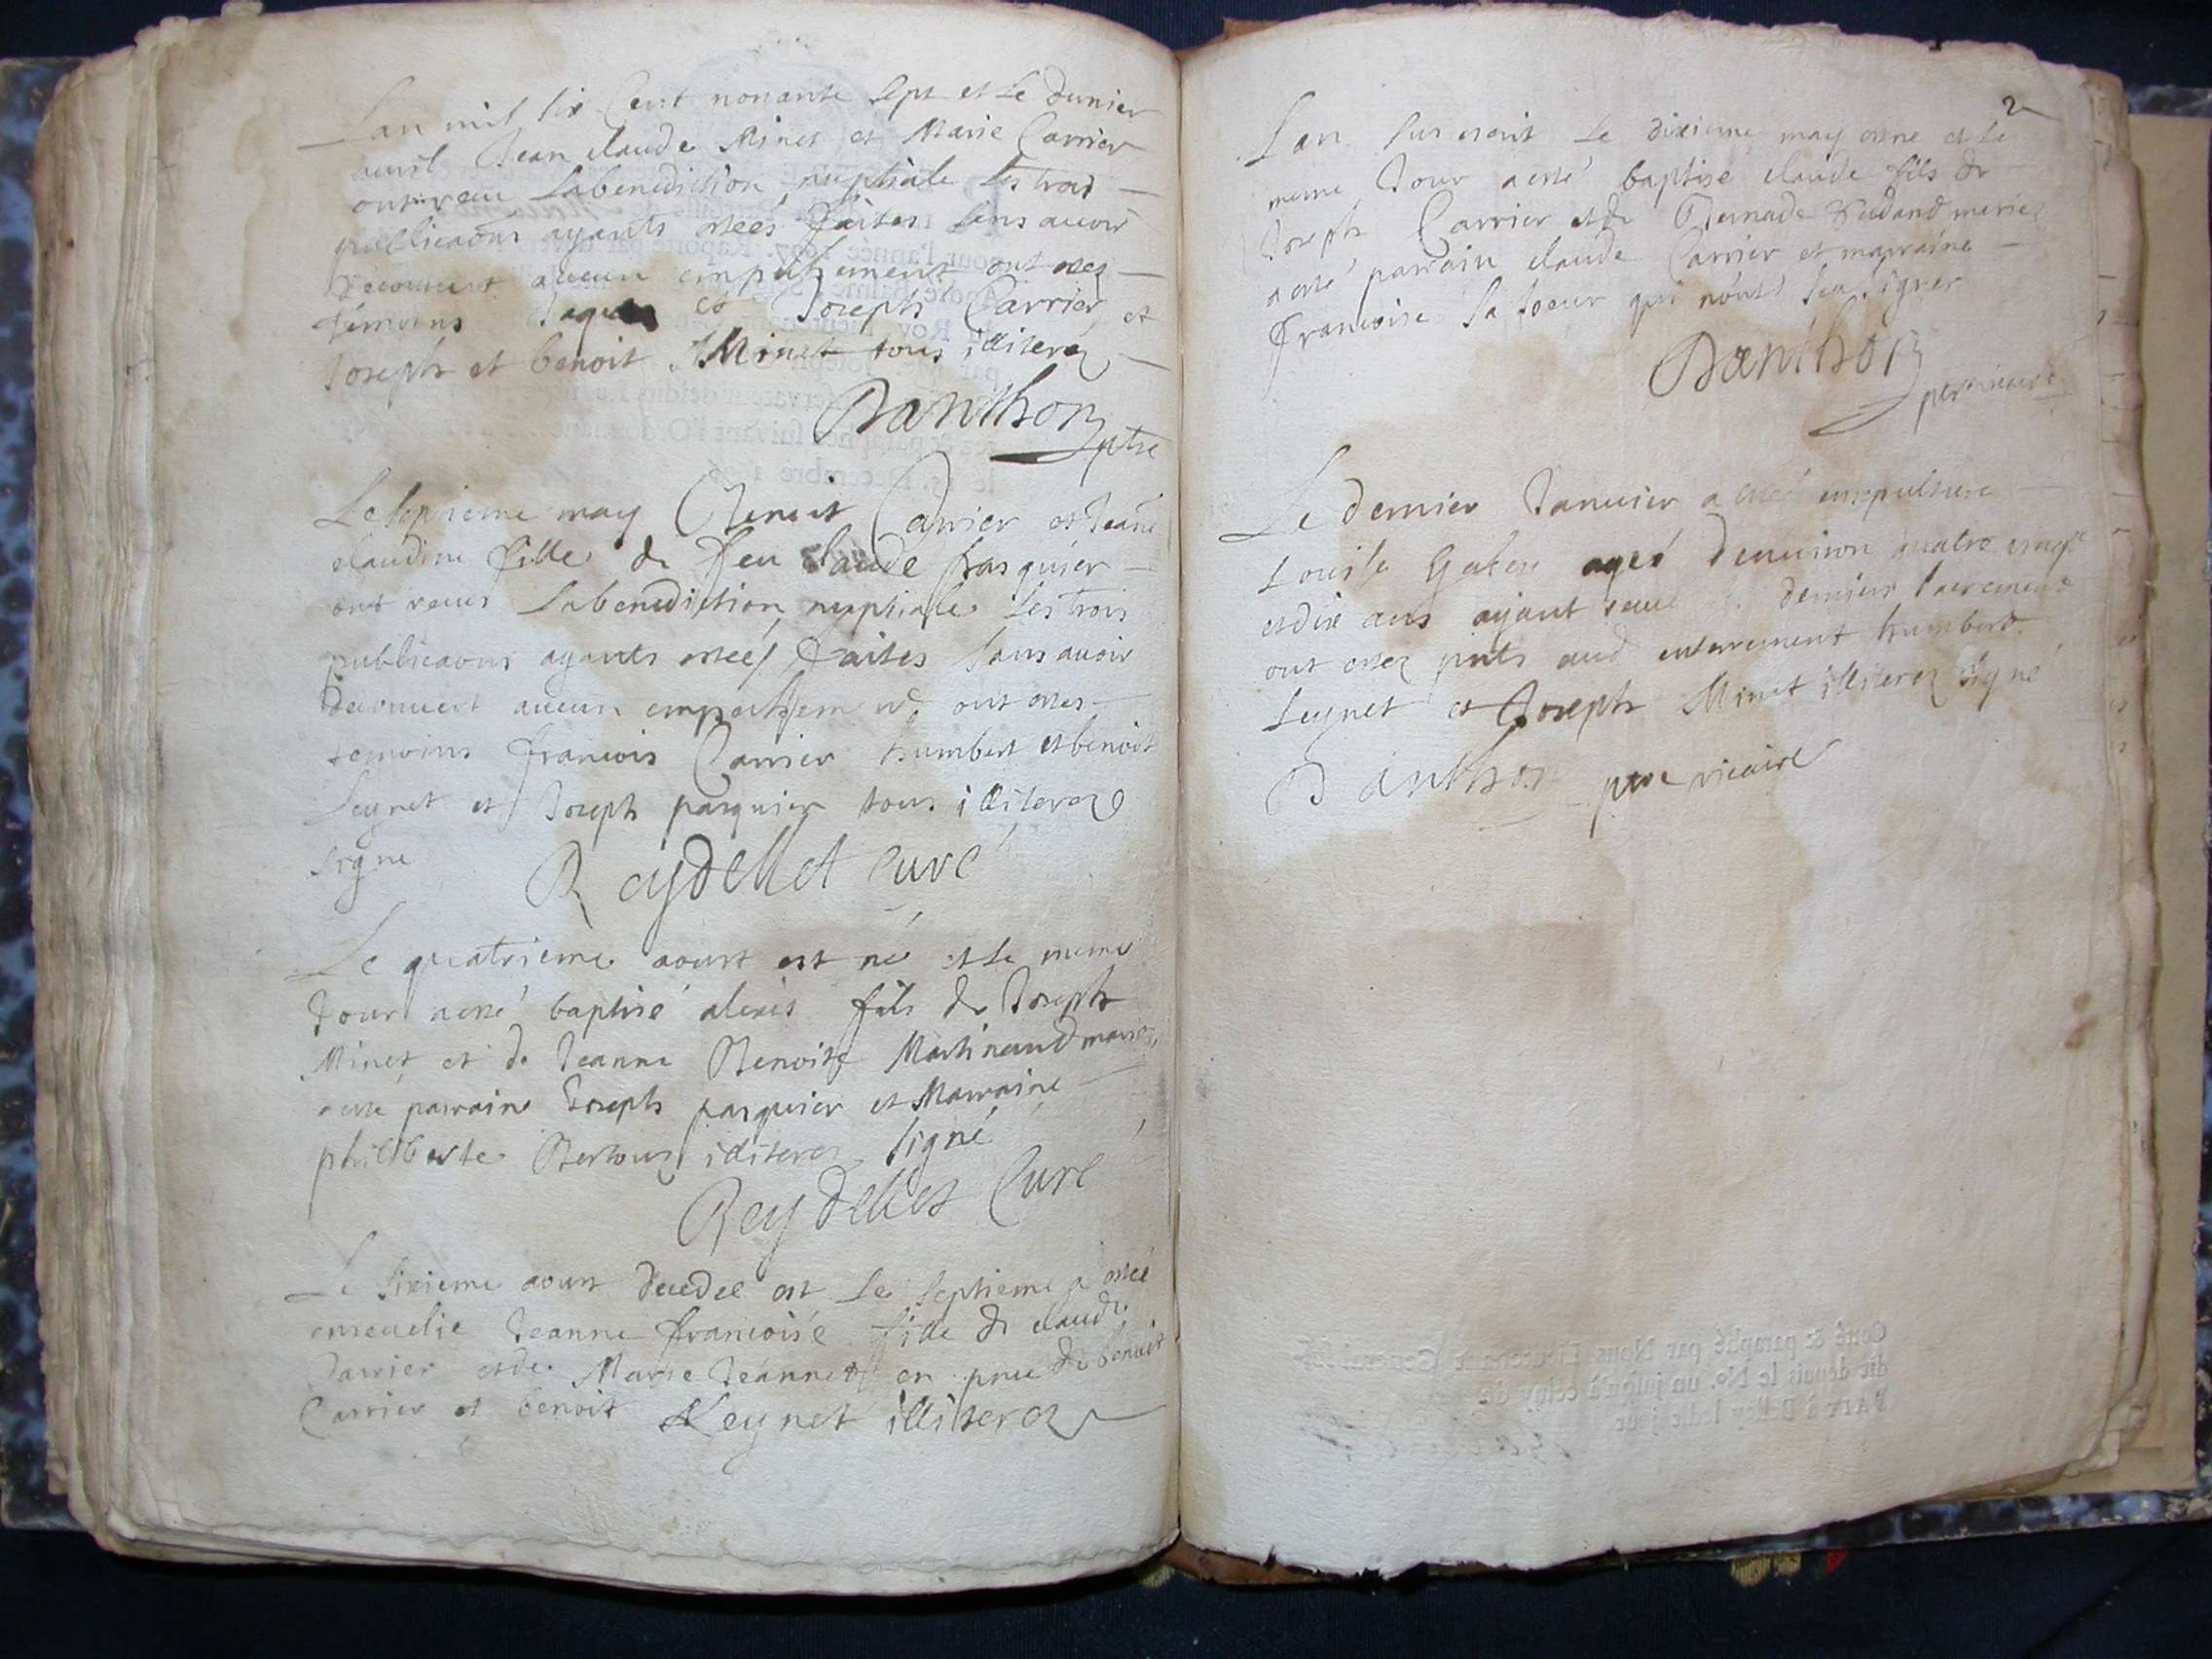 Lan mil six Cent nonante sept et le dernier
avril Jean claude Minet et Marie Carrier
ont receu la benediction nuptiale les trois
publicaons ayants estées faites sans avoir
decouvert aucun empechement ont estes
témoins et Joseph Carrier et
Joseph et benoit Minet tous illiterez
Danthon ptre
Le septieme may Benoit Carrier et Jeane
claudine fille de feu claude pasquier
ont receus la benediction nuptiale les trois
publicaons ayants estées faites sans avoir
decouvert aucun ont estes
temoins francois Carrier humbert et benoit
Leynet et Joseph pasquier tous illiterez
signe Reydellet curé
Le quatrieme aoust est né et le meme
Jour a esté baptisé alexis fils de Joseph
Minet et de Jeanne Benoite Martinand mariez
a esté parrain Joseph pasquier et Marraine
philiberte illiterez signé
Reydellet Curé
Le sixieme aoust decedée et le septieme a estée
ensevelie Jeanne francoise fille de claude
Carrier et de Marie Jeannet en pnce de benoit
Carrier et benoit Leynet illiterez
2
Lan sus escrit le dixieme may et le
meme Jour a esté baptisé claude fils de
Joseph Carrier et de mariez
a esté parrain claude Carrier et marraine
francoise sa soeur qui n'ont sceu signer
Danthon
Le dernier Janvier a esté en sepulture
Louise ageé d'environ quatre vingt
et dix ans ayant receu dernier sacrement
ont estez pnts aud enterrement humbert
Leynet et Joseph Minet illiterez signé
Danthon ptre vicaire
Coté & paraphé par Nous Lieutenant General sus-
dit depuis le No. un jusqu'à celuy de
FAIT à Belley ledit jour